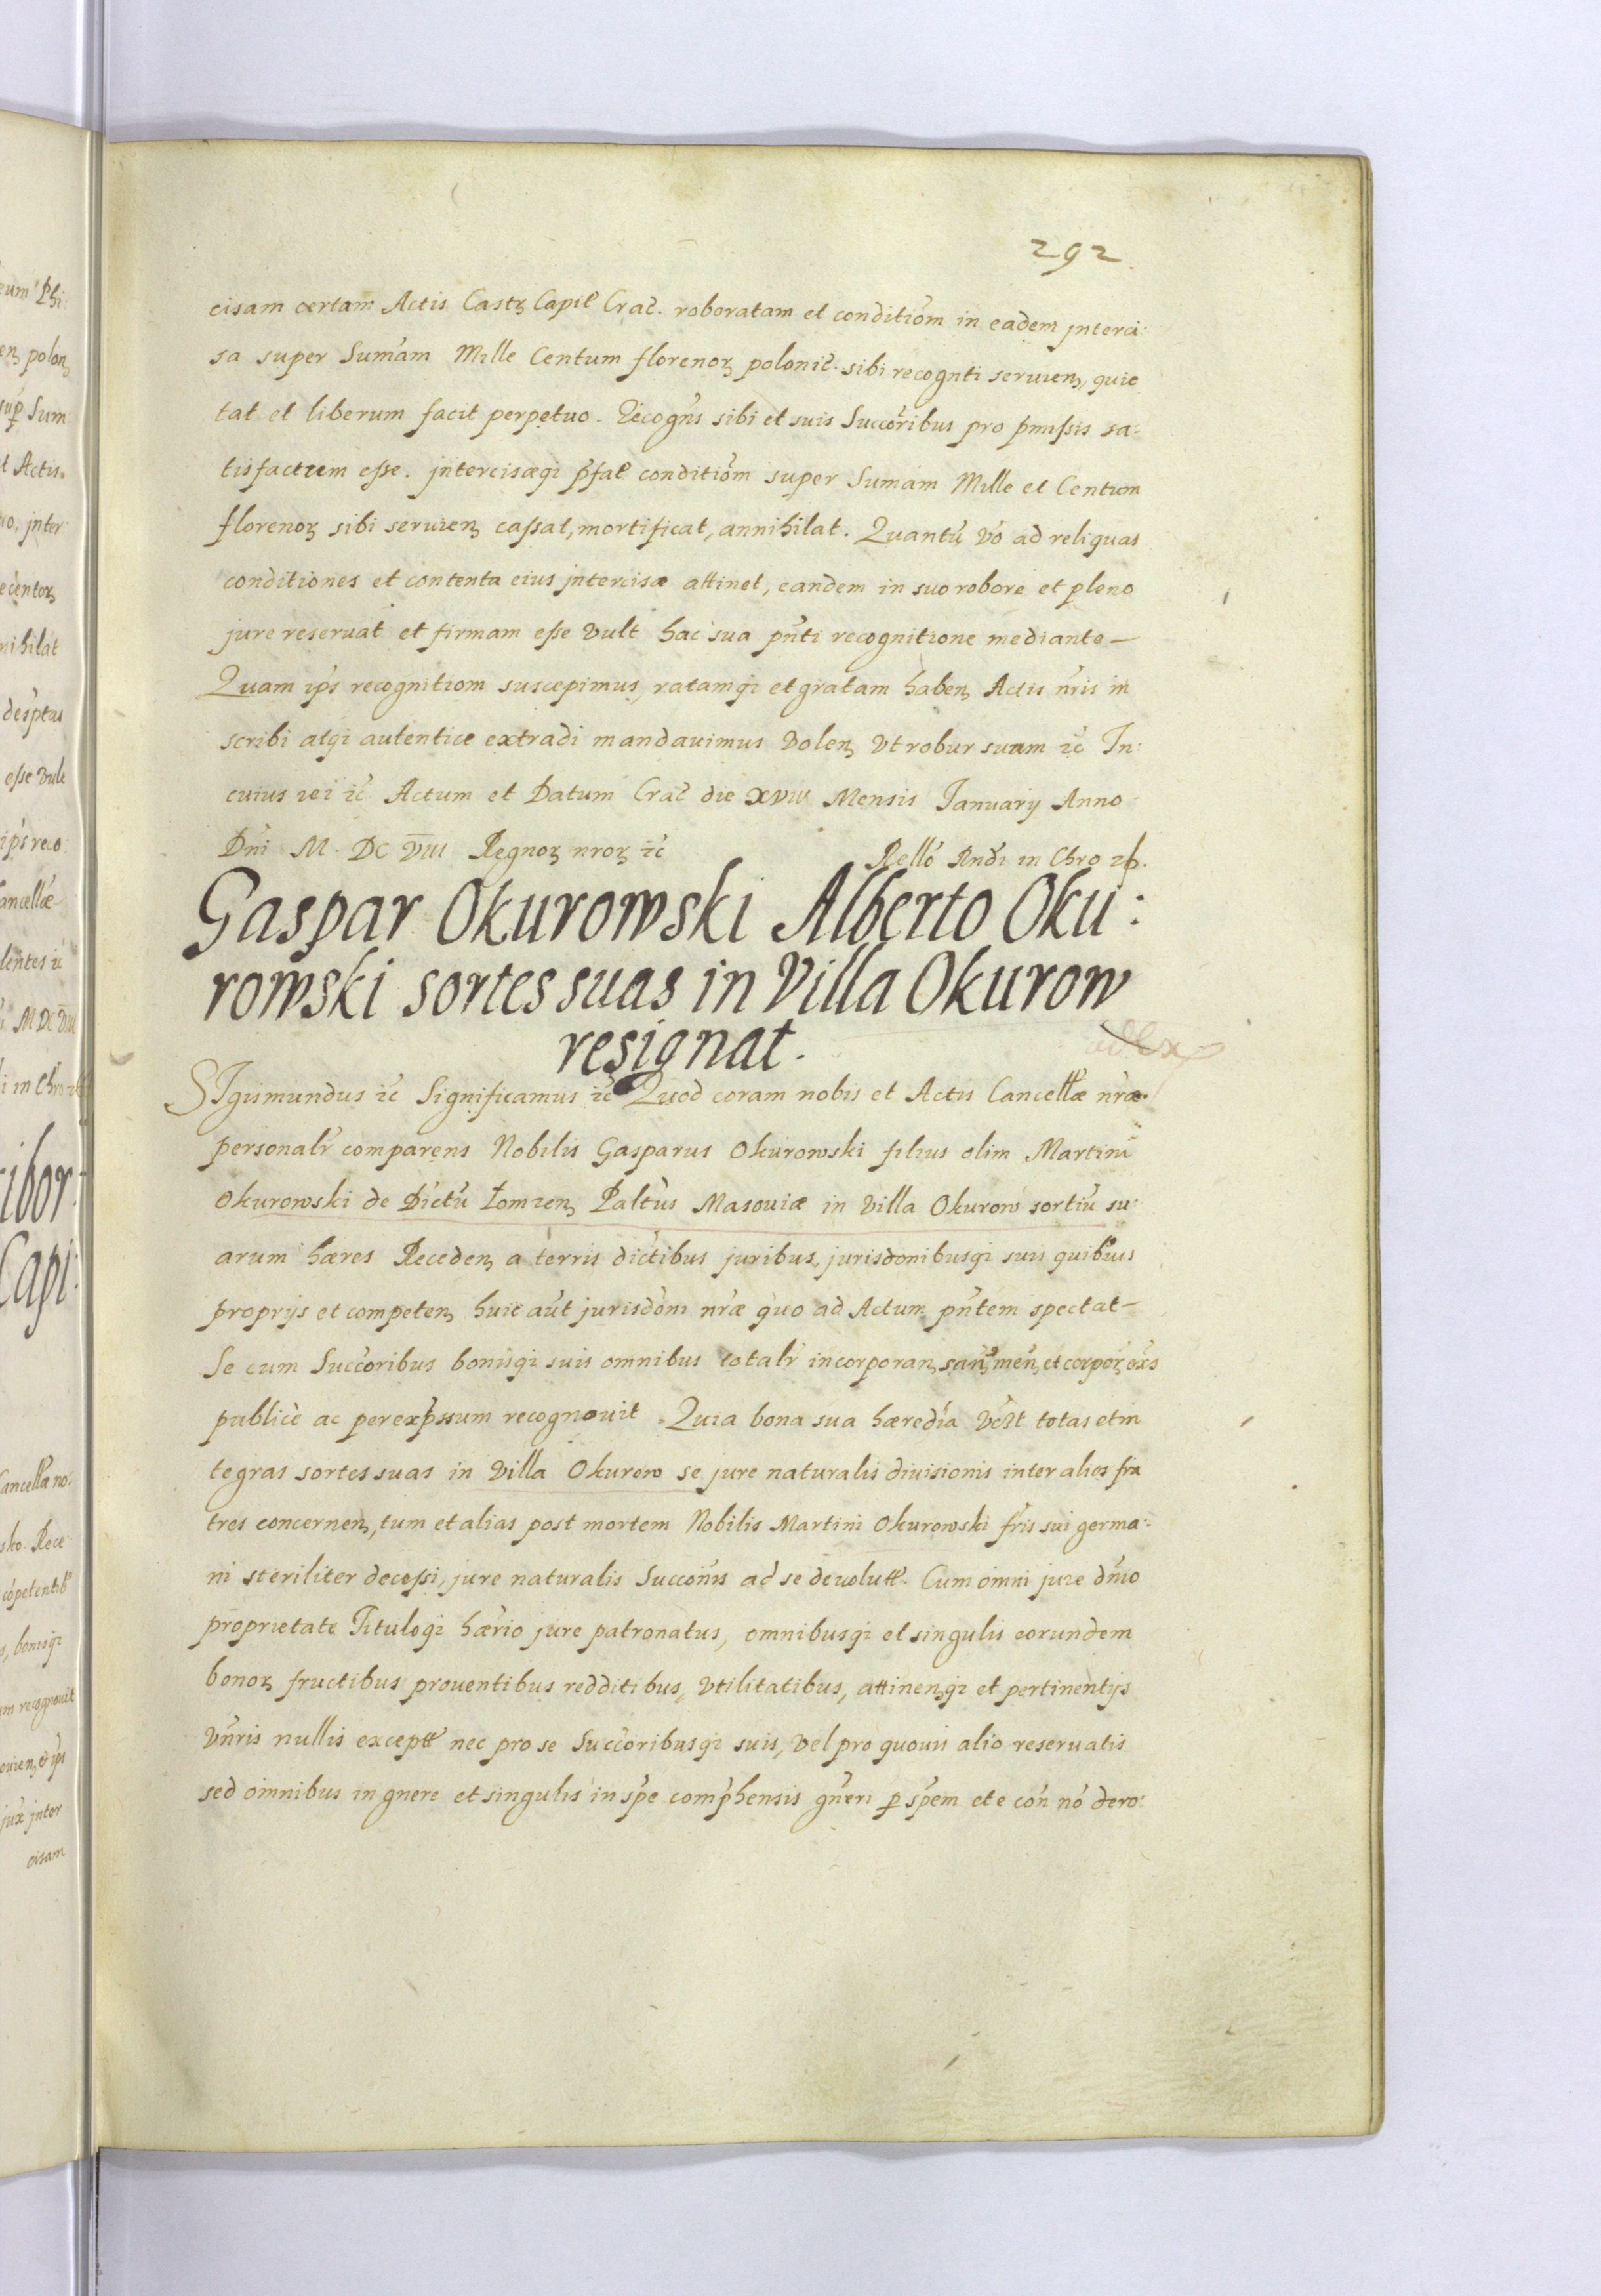 292
cisam certam Actis Castꝝ Capil Crac̃. roboratam et conditiõm in eadem jnterci:
sa super Sum̃am Mille Centum florenoꝝ polonic̃. sibi recogniti seruienꝫ, quie
tat et liberum facit perpetuo. Recogñs sibi et suis Succõribus pro p̃missis sa:
tisfactum esse. jntercisæqꝫ p̃fat conditiõm super Sumam Mille et Centum
florenoꝝ sibi seruienꝫ cassat, mortificat, annihilat. Quantũ võ ad reliquas
conditiones et contenta eius jntercisæ attinet, eandem in suo robore et pleno
jure reseruat et firmam esse vult hac sua pñti recognitione mediante —
Quam ip̃s recognitiom suscepimus, ratamqꝫ et gratam habenꝫ Actis nr̃is in
scribi atqꝫ autentice extradi mandauimus volenꝫ vt robur suum ec̃ In:
cuius rei ec̃ Actum et Datum Crac̃ die XVIII Mensis Ianuarij Anno
Dñi M. DC VIII Regnoꝝ nroꝝ ec̃ Rellõ Rndi in Chro
Gaspar Okurowski Alberto Oku:
rowski sortes suas in Villa Okurow
resignat.
SIgismundus ec̃ Significamus ec̃ Quod coram nobis et Actis Cancellæ nr̃æ
personalr̃ comparens Nobilis Gasparus Okurowski filius olim Martini
Okurowski de Dictũ Łomzenꝫ Paltũs Masouiæ in villa Okurow sortiũ su:
arum hæres Recedenꝫ a terris dictibus juribus, jurisdonibusqꝫ suis quibuis
proprijs et competenꝫ huic aũt jurisdõni nr̃æ quo ad Actum pñtem spectat —
Se cum Succõribus bonisqꝫ suis omnibus totalr̃ incorporanꝫ, sanꝫ menꝫ et corporꝫ exñs
publicè ac perexp̃ssum recognouit. Quia bona sua hæredĩa vc̃lt totas et in
tegras sortes suas in villa Okurow se jure naturalis diuisionis inter alios fra
tres concernenꝫ, tum et alias post mortem Nobilis Martini Okurowski fr̃is sui germa:
ni steriliter decessi, jure naturalis Succoñis ad se deuolutt. Cum omni jure dñio
proprietate Tituloqꝫ hær̃io jure patronatus, omnibusqꝫ et singulis eorundem
bonoꝝ fructibus prouentibus redditibus, vtilitatibus, attinenꝫqꝫ et pertinentijs
vñris nullis exceptt nec pro se Succõribusqꝫ suis, vel pro quouis alio reseruatis
sed omnibus in gnere et singulis in sp̃e comp̃hensis gñeri p sp̃em et e coñ nõ dero: